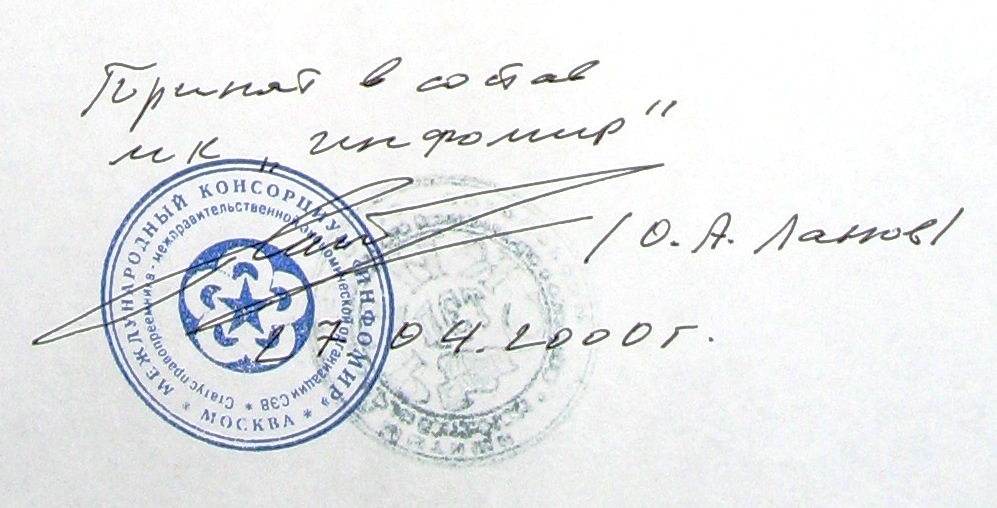 Принят в состав
МК "Инфомир"
/ О. А. Ланов/
27.04.2000г.
МЕЖДУНАРОДНЫЙ КОНСОРЦИУМ «ИНФОМИР» * МОСКВА *
Статус правопреемника - межправительственной экономической организации СЭВ *